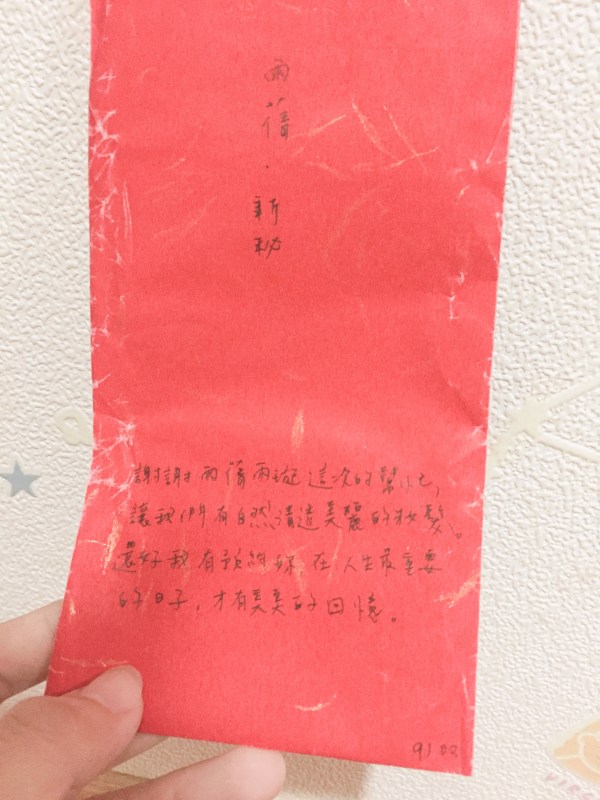 雨蒨.新秘
謝謝雨蒨雨璇這次的幫忙,
讓我們有自然清透美麗的妝髮。
還好我有預約妳,在人生最重要
的日子,才有美美的回憶。